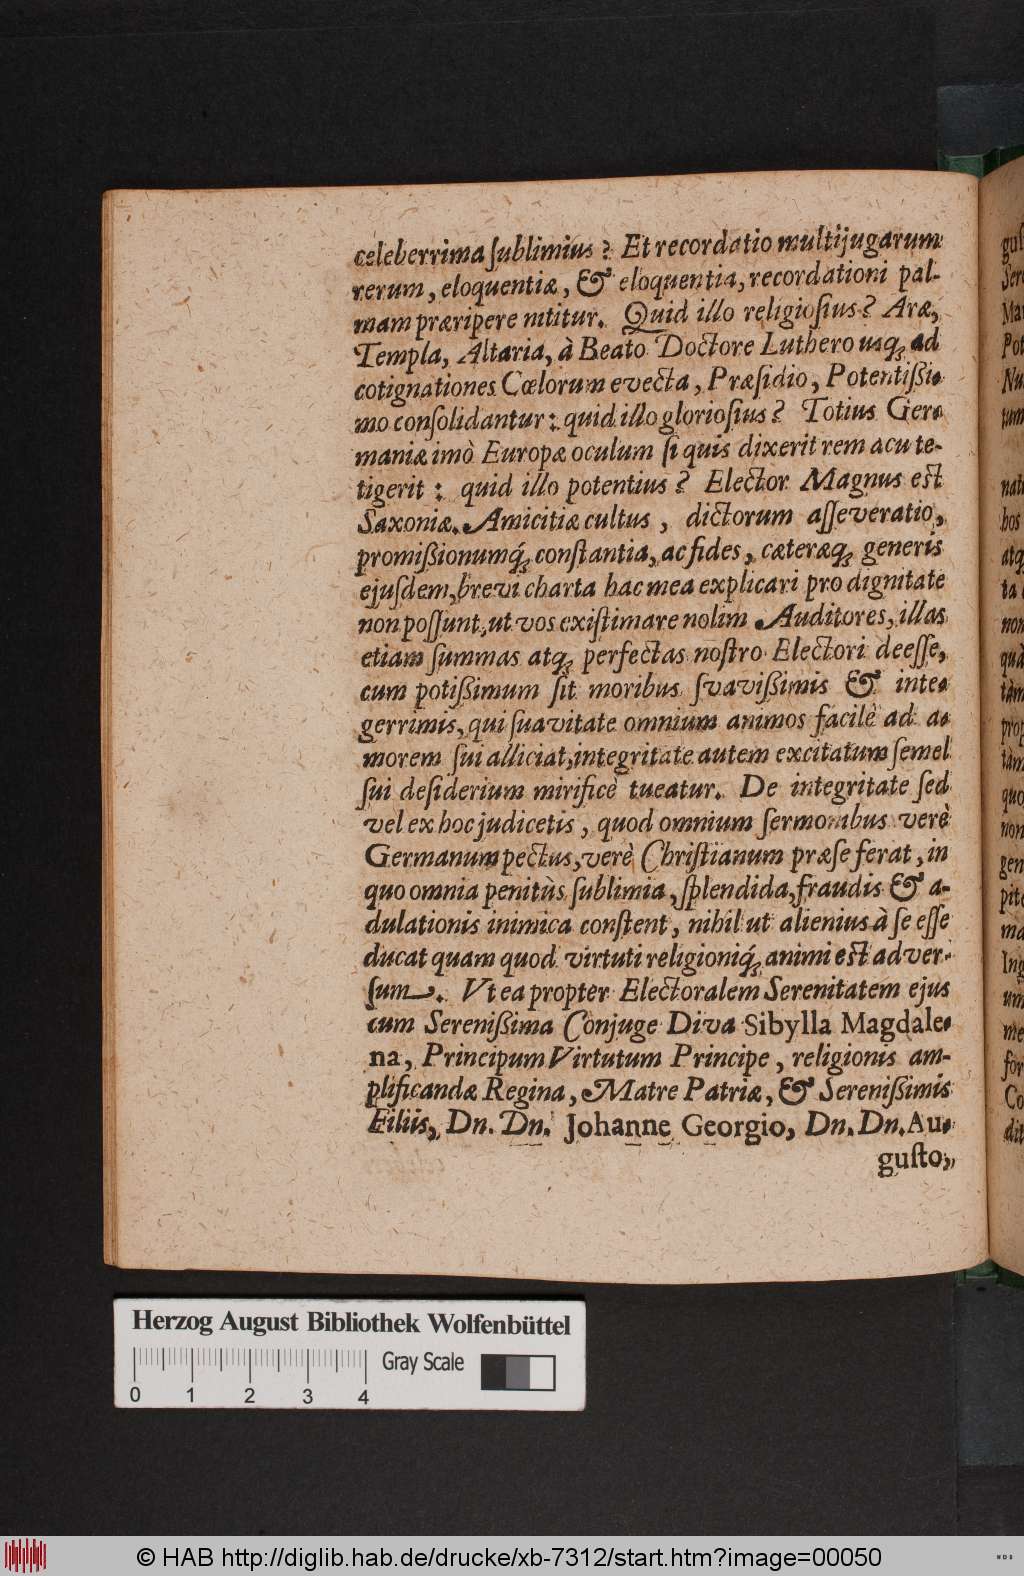 celeberrima ſublimius? Et recordatio multijugarum
rerum, eloquentiæ, & eloquentia, recordationi pal-
mam præripere nititur. Quid illo religioſius? Aræ,
Templa, Altaria, à Beato Doctore Luthero usq; ad
cotignationes Cœlorum evecta, Præſidio, Potentißi-
mo conſolidantur: quid illo glorioſius? Totius Ger-
maniæ imò Europæ oculum ſi quis dixerit rem acu te-
tigerit: quid illo potentius? Elector Magnus est
Saxoniæ. Amicitiæ cultus, dictorum aſſeveratio,
promißionumq́; conſtantia, ac fides, cæteræq; generis
ejuſdem, brevi charta hac mea explicari pro dignitate
non poſſunt, ut vos exiſtimare nolim Auditores, illas
etiam ſummas atq; perfectas noſtro Electori deeſſe,
cum potißimum ſit moribus ſvavißimis & inte-
gerrimis, qui ſuavitate omnium animos facilè ad a-
morem ſui alliciat, integritate autem excitatum ſemel
ſui deſiderium mirificè tueatur. De integritate ſed
vel ex hoc judicetis, quod omnium ſermonibus verè
Germanum pectus, verè Chriſtianum præ ſe ferat, in
quo omnia penitùs ſublimia, ſplendida, fraudis & a-
dulationis inimica conſtent, nihil ut alienius à ſe eſſe
ducat quam quod virtuti religioniq́; animi est adver-
ſum. Vt ea propter Electoralem Serenitatem ejus
cum Serenißima Conjuge Diva Sibylla Magdale-
na, Principum Virtutum Principe, religionis am-
plificandæ Regina, Matre Patriæ, & Serenißimis
Filiis, Dn. Dn. Johanne Georgio, Dn. Dn. Au-
guſto,
guſ
Ser
Mar
Pot
Nu
tum
nat
hos
atq
ta
non
quà
tàm
prop
tàm
quo
non
gen
pit
ma
Ing
um
me
for
Co
dit
Herzog August Bibliothek Wolfenbüttel
Gray Scale
0 1 2 3 4
© HAB http://diglib.hab.de/drucke/xb-7312/start.htm?image=00050